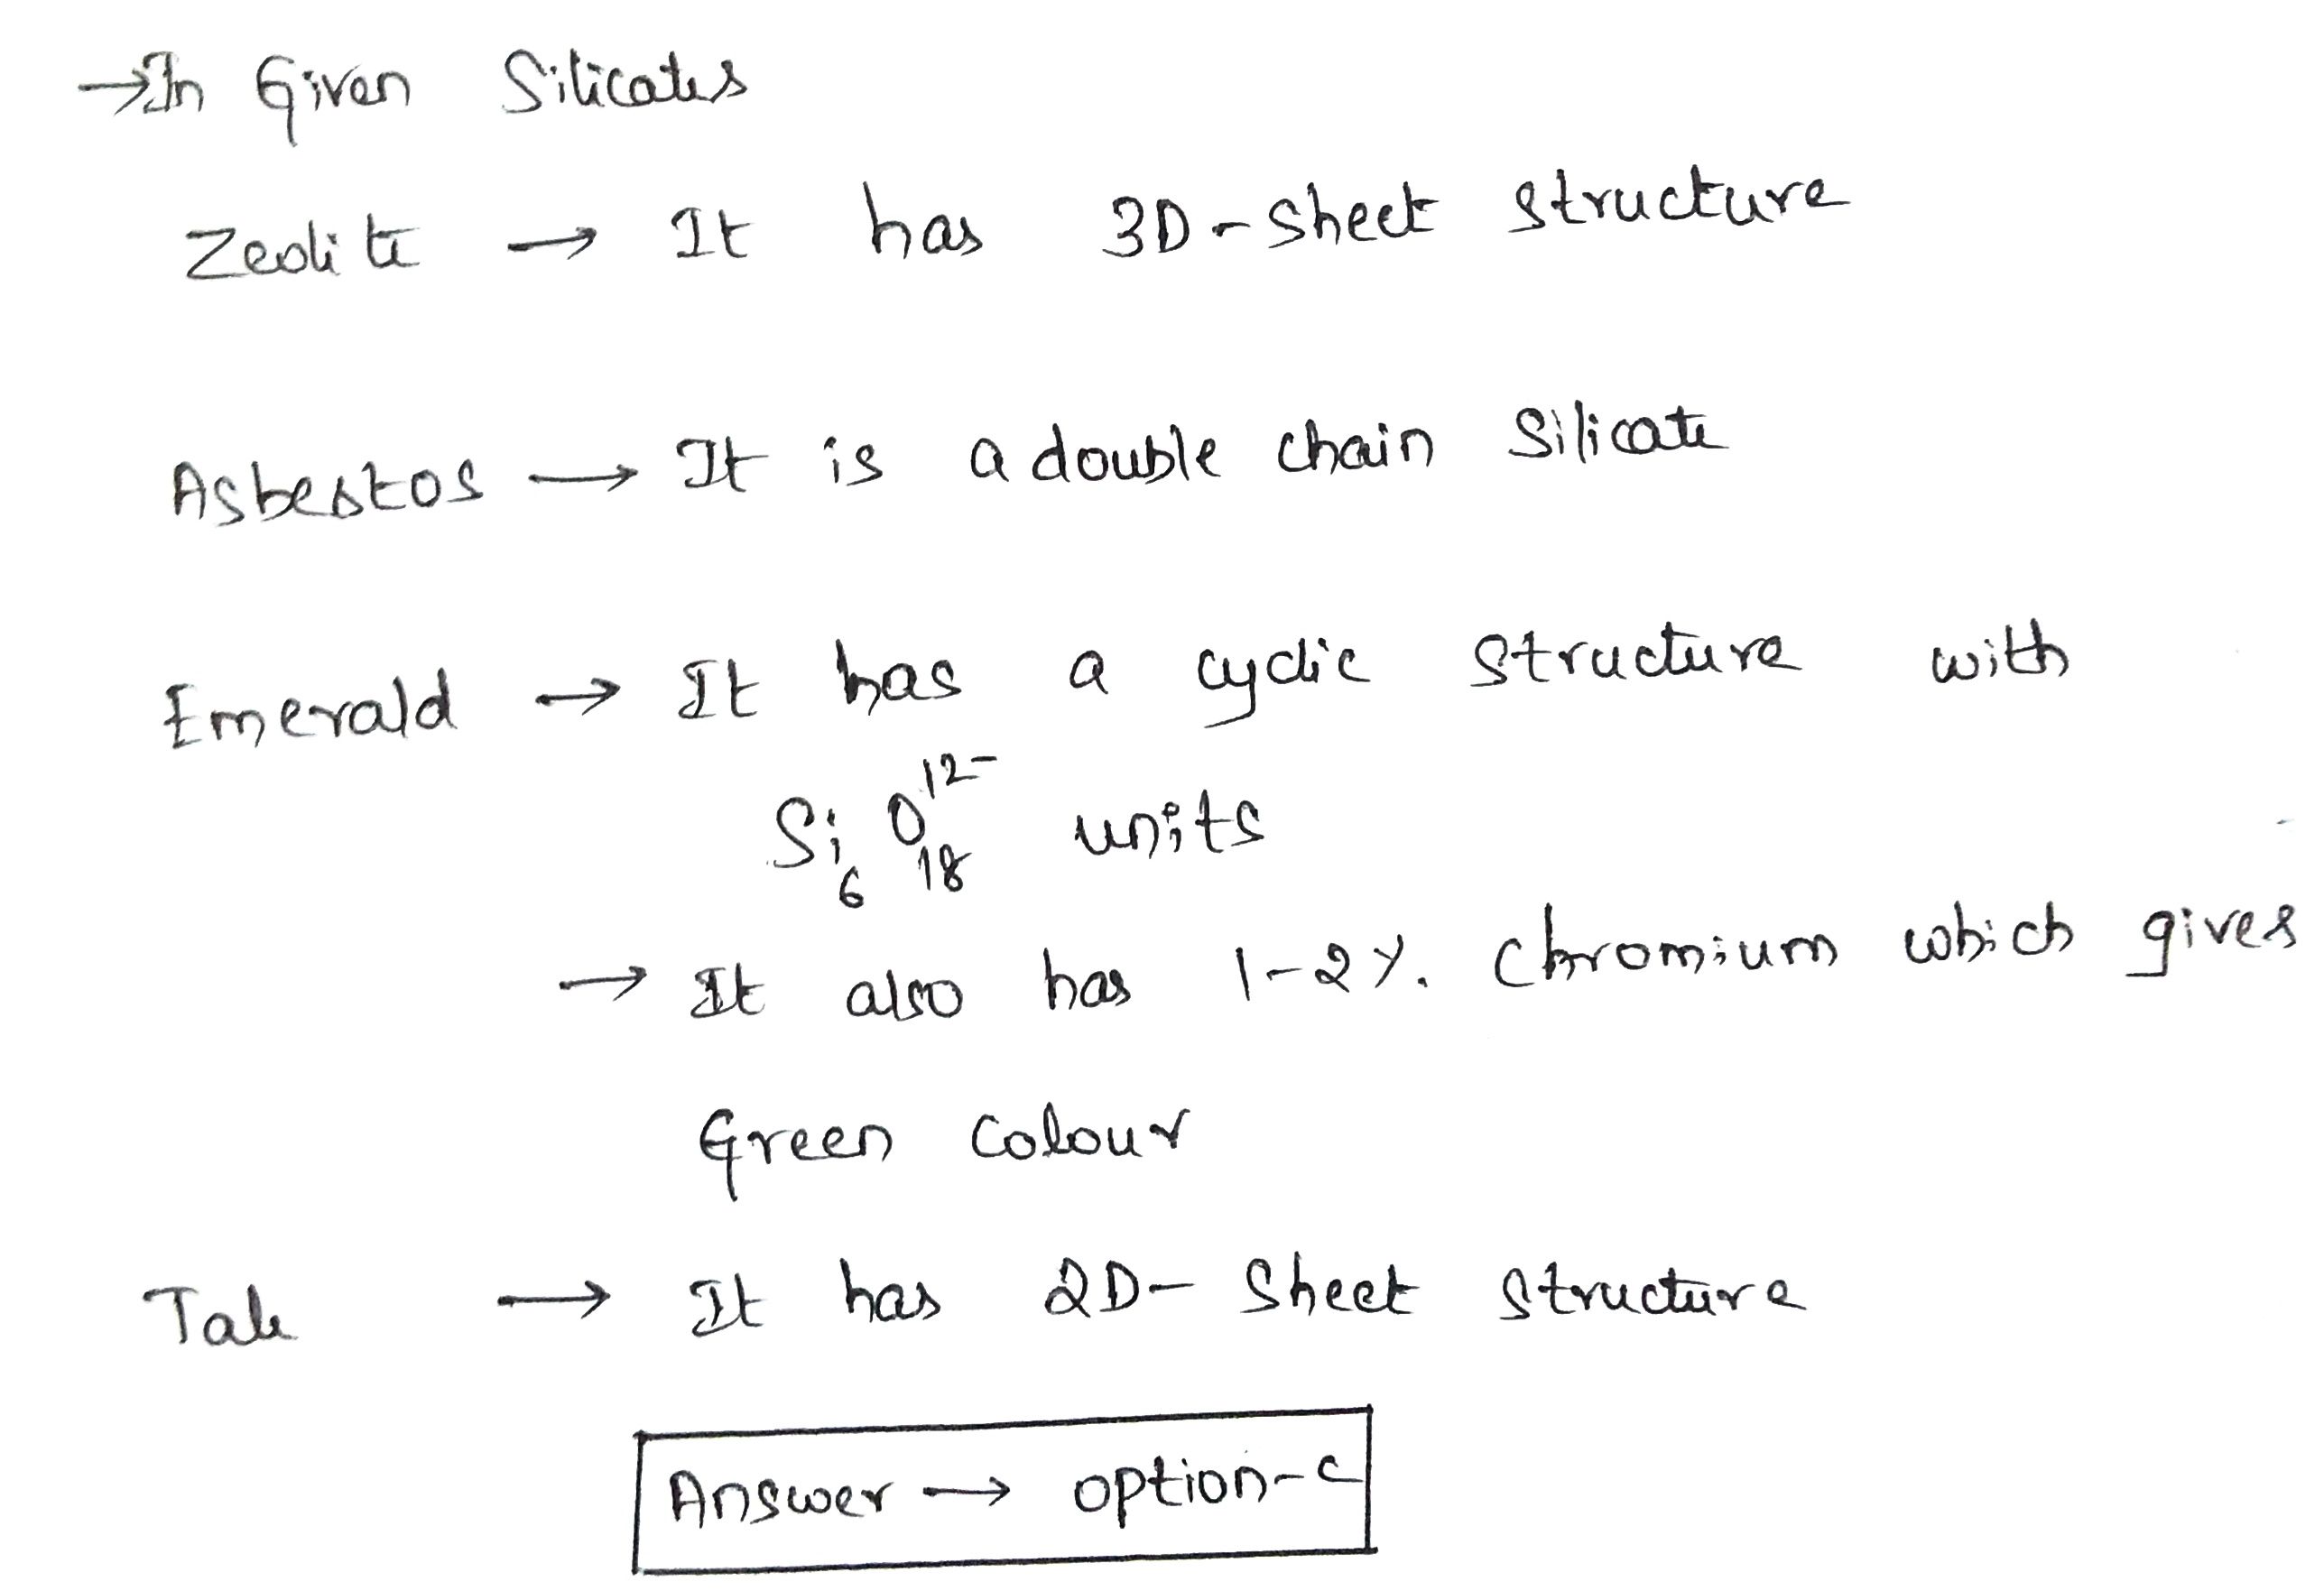 →In Given Silicates
Zeolite → It has 3D-Sheet Structure
Asbestos → It is a double chain Silicate
Emerald → It has a cyclic Structure with
Si₆O₁₈¹²⁻ units
→ It also has 1-2%. Chromium which gives
Green Colour
Talc → It has 2D- Sheet Structure
Answer → option-c